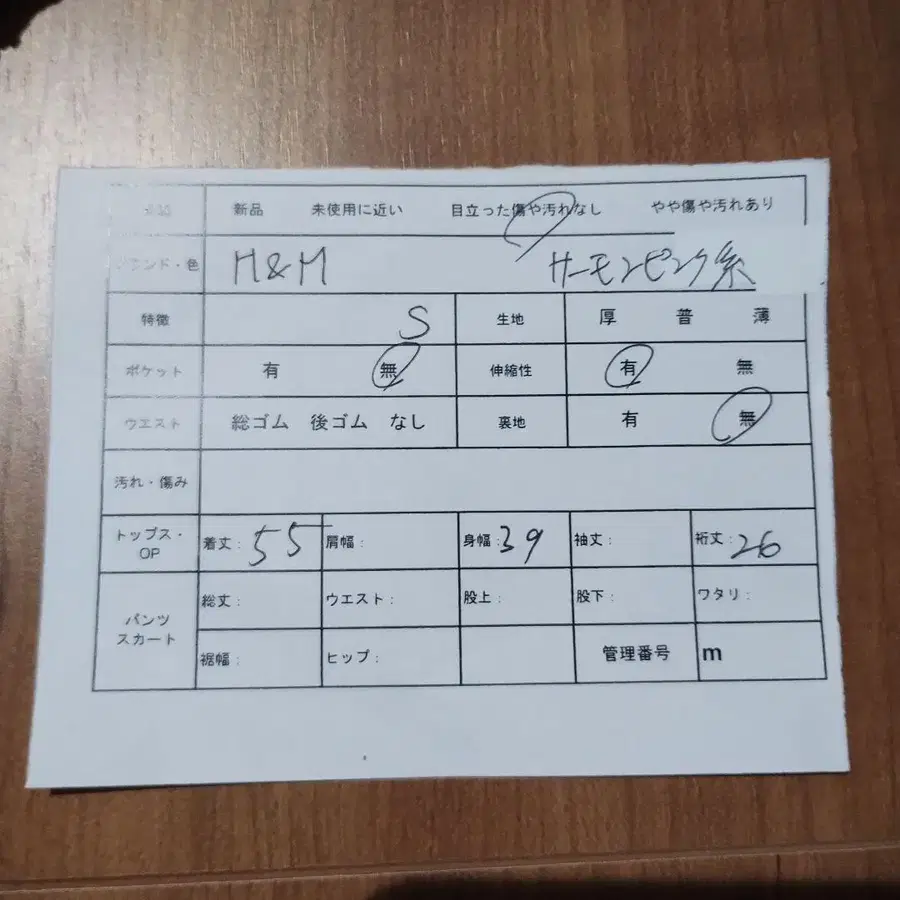 新品 未使用に近い 目立った傷や汚れなし やや傷や汚れあり
ブランド・色 H&M サーモンピンク系
特徴 S 生地 厚 普 薄
ポケット 有 無 伸縮性 有 無
ウエスト 総ゴム 後ゴム なし 裏地 有 無
汚れ・傷み
トップス・OP 着丈: 55 肩幅: 身幅: 39 袖丈: 裄丈: 26
パンツ スカート 総丈: ウエスト: 股上: 股下: ワタリ:
裾幅: ヒップ: 管理番号 m